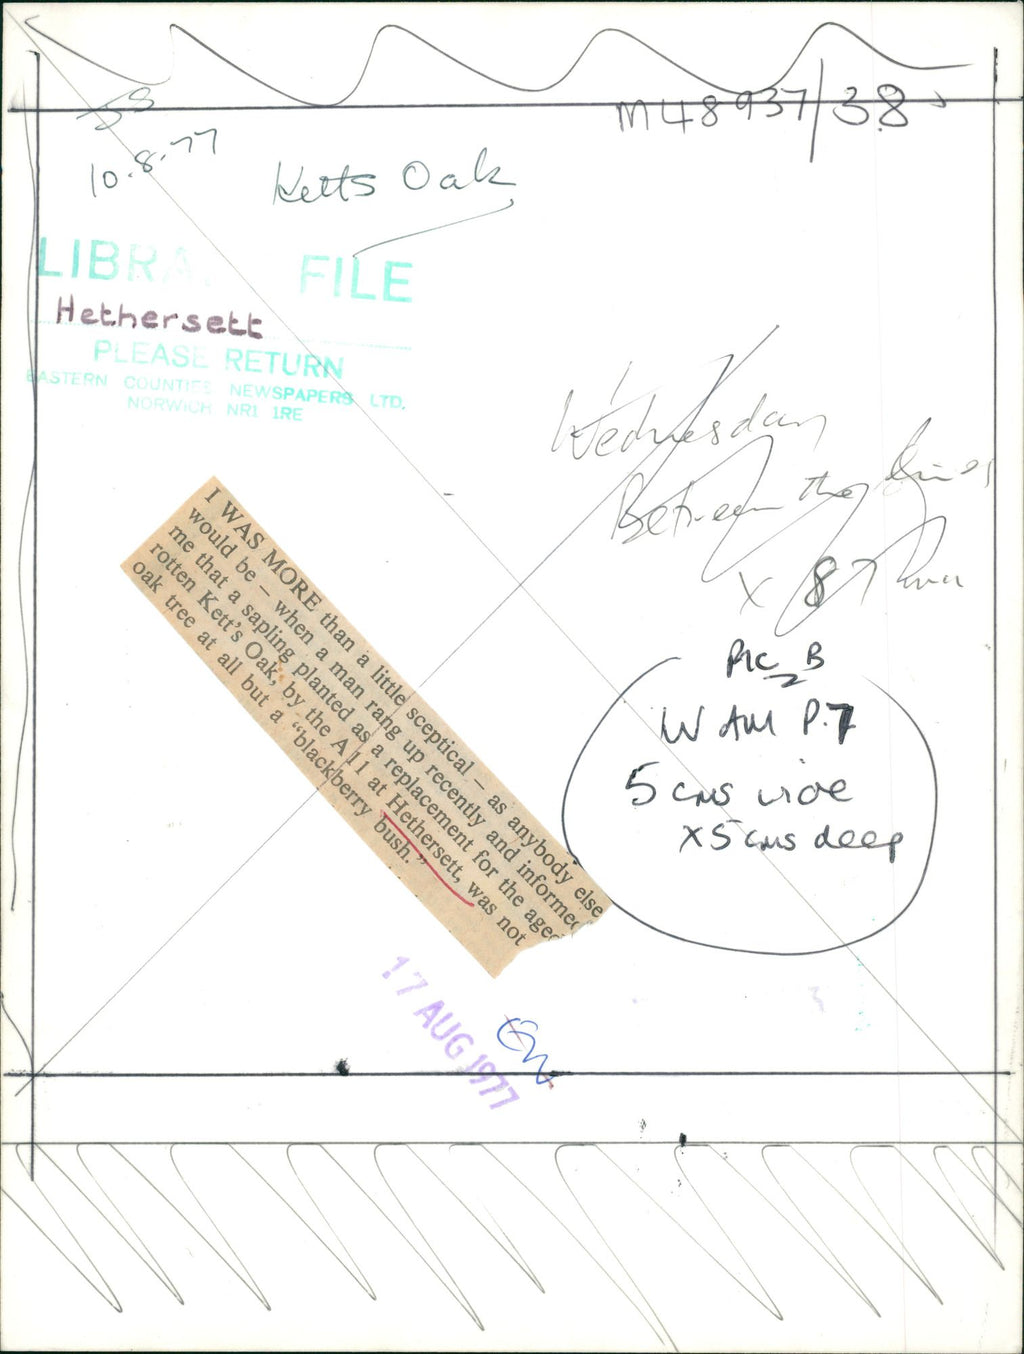 M48937/38
10.8.77
Ketts Oak
LIBRA FILE
Hethersett
PLEASE RETURN
EASTERN COUNTIES NEWSPAPERS LTD.
NORWICH NR1 1RE
Wednesday
Between the lines
x 8
Pic B
W AM P.7
5 cms wide
x 5 cms deep
I WAS MORE than a little sceptical – as anybody else
would be – when a man rang up recently and informed
me that a sapling planted as a replacement for the aged
rotten Kett's Oak, by the A11 at Hethersett, was not
oak tree at all but a "blackberry bush."
17 AUG 1977